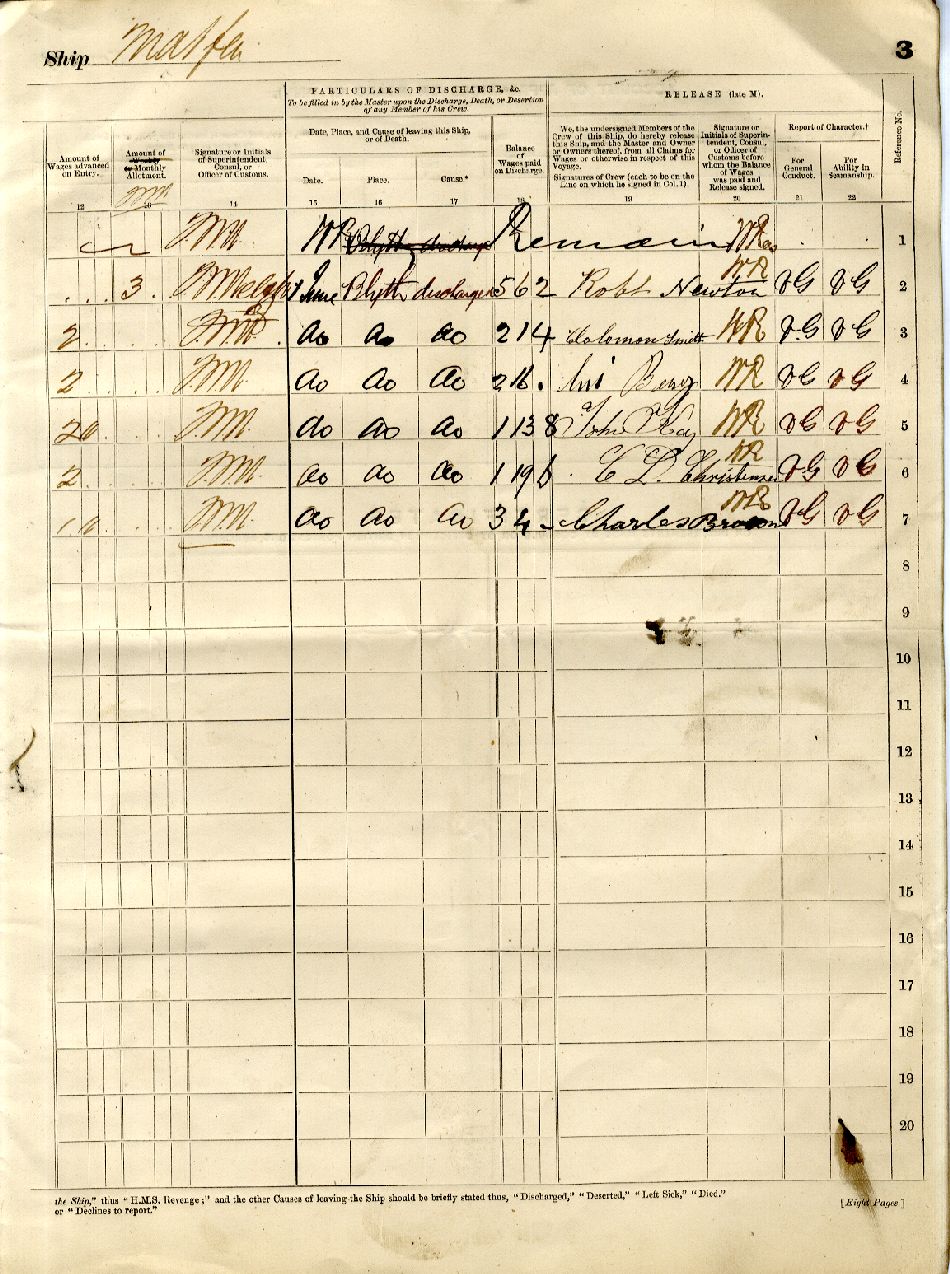 Ship Matfen
3
PARTICULARS OF DISCHARGE, &c.
To be filled in by the Master upon the Discharge, Death, or Desertion
of any Member of his Crew.
RELEASE (late M).
Amount of
Wages advanced
on Entry.
Amount of
Weekly
or Monthly
Allotment.
Signature or Initials
of Superintendent,
Consul, or
Officer of Customs.
Date, Place, and Cause of leaving this Ship,
or of Death.
Date.
Place.
Cause*
Balance
of
Wages paid
on Discharge.
We, the undersigned Members of the
Crew of this Ship, do hereby release
this Ship, and the Master and Owner
or Owners thereof, from all Claims for
Wages or otherwise in respect of this
Voyage.
Signatures of Crew (each to be on the
Line on which he signed in Col. 1).
Signature or
Initials of Superin-
tendent, Consul,
or Officer of
Customs before
whom the Balance
of Wages
was paid and
Release signed.
Report of Character.†
For
General
Conduct.
For
Ability in
Seamanship.
Reference No.
12 13 14 15 16 17 18 19 20 21 22
WR Blyth discharge Remain WR 1
3 June Blyth discharged 5 6 2 Robt Newton WR VG VG 2
2 do do do 2 1 4 Solomon Smith WR VG VG 3
2 do do do 2 16 Berg WR VG VG 4
do do do 1 13 8 John Kay WR VG VG 5
2 do do do 1 19 6 C L Christensen WR VG VG 6
do do do 3 4 - Charles Brown WR VG VG 7
8
9
10
11
12
13
14
15
16
17
18
19
20
the Ship," thus "H.M.S. Revenge;" and the other Causes of leaving the Ship should be briefly stated thus, "Discharged," "Deserted," "Left Sick," "Died."
or "Declines to report."
[Eight Pages]